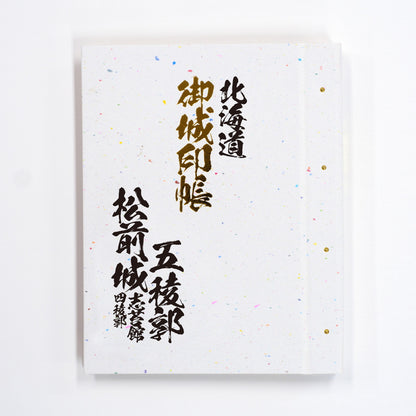 北海道
御城印帳
五稜郭
松前城
志苔館
四稜郭